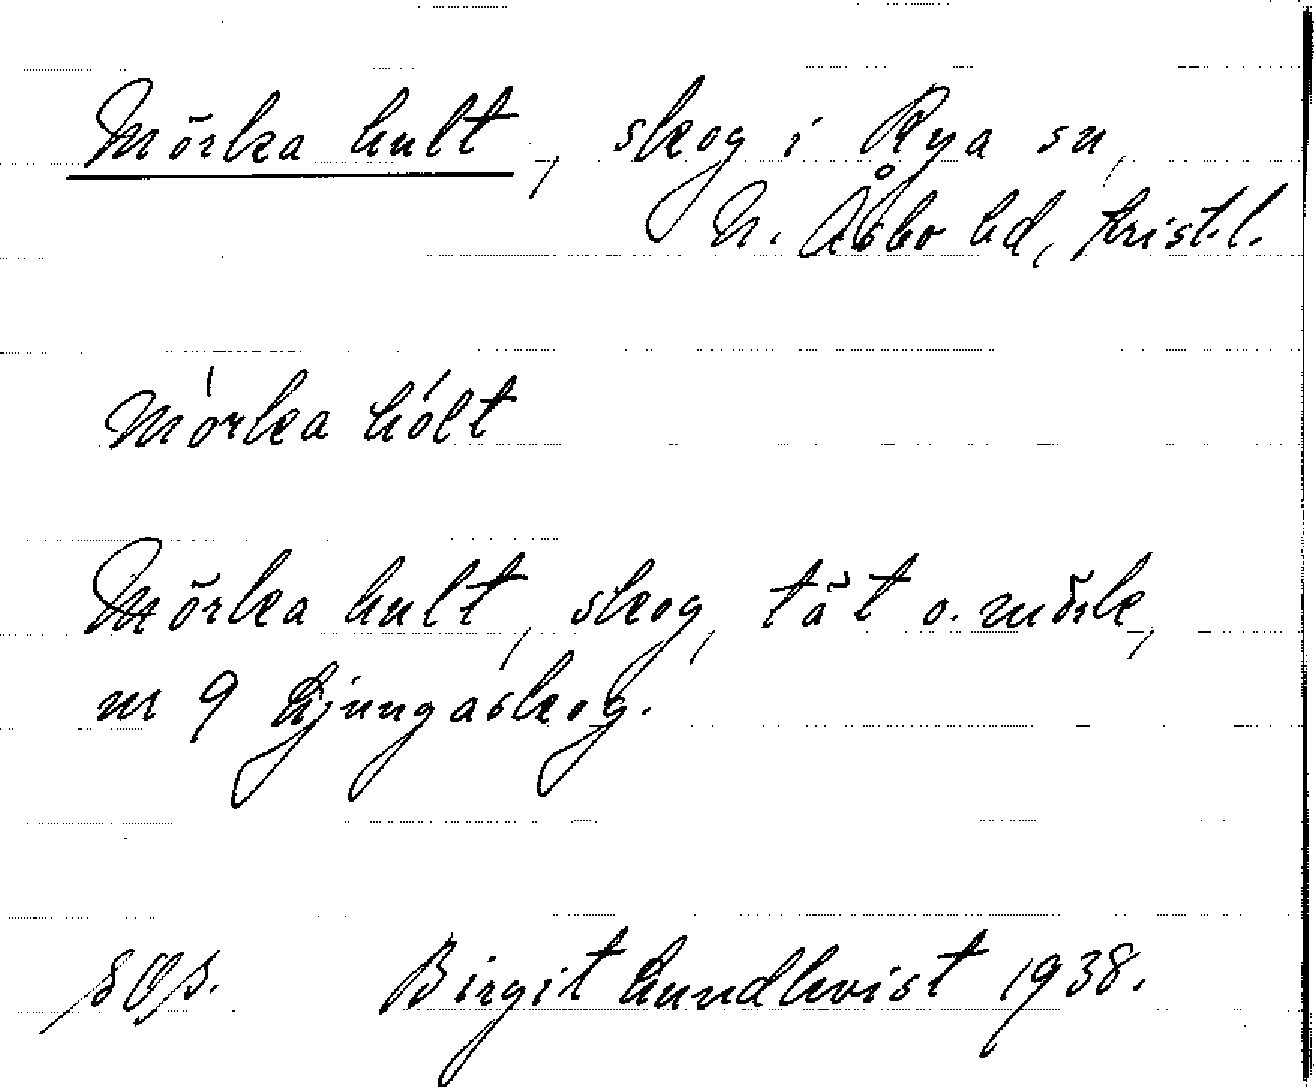 Mörka hult, skog i Rya sn,
N. Åsbo hd, Krist.l.
mórka hólt
Mörka hult, skog, tät o. mörk,
nr 9 Ljungaskog.
Birgit Lundkvist 1938.